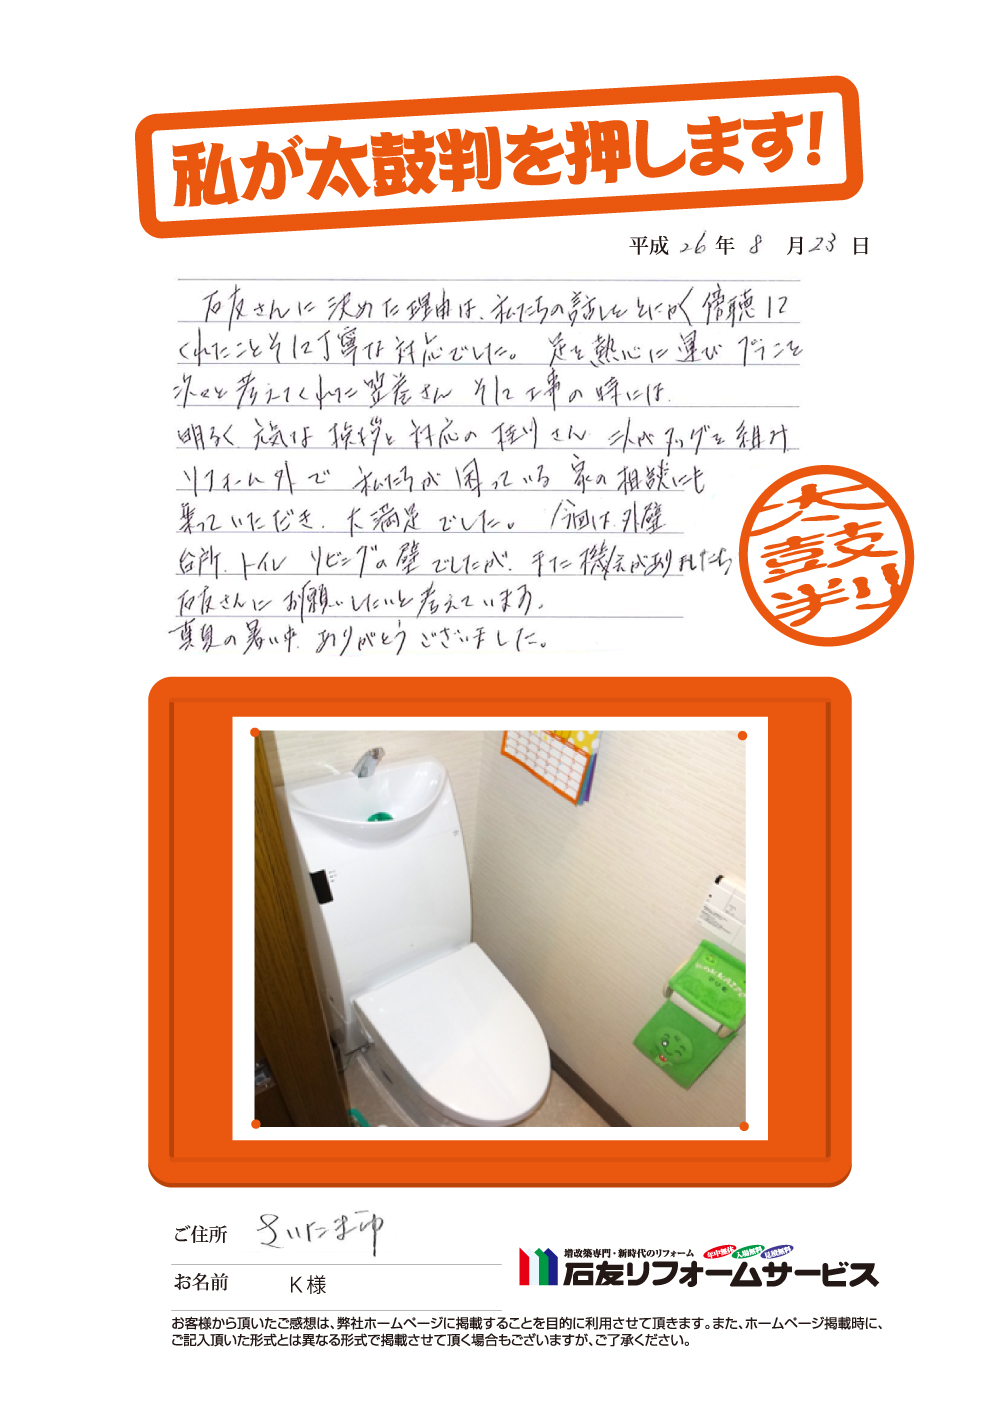 私が太鼓判を押します!
平成 26 年 8 月 23 日
石友さんに決めた理由は、私たちの話しをとにかく傍聴して
くれたことそして丁寧な対応でした。足を熱心に運びプランを
次々と考えてくれた笠巻さん そして工事の時には、
明るく元気な挨拶と対応の桂川さん 二人がタッグを組み
リフォーム外で 私たちが困っている 家の相談にも
乗っていただき、大満足でした。今回は、外壁
台所、トイレ リビングの壁でしたが、また機会がありましたら
石友さんにお願いしたいと考えています。
真夏の暑い中、ありがとうございました。
太鼓判
ご住所 さいたま市
お名前 K様
増改築専門・新時代のリフォーム
年中無休 見積無料
石友リフォームサービス
お客様から頂いたご感想は、弊社ホームページに掲載することを目的に利用させて頂きます。また、ホームページ掲載時に、
ご記入頂いた形式とは異なる形式で掲載させて頂く場合もございますが、ご了承ください。